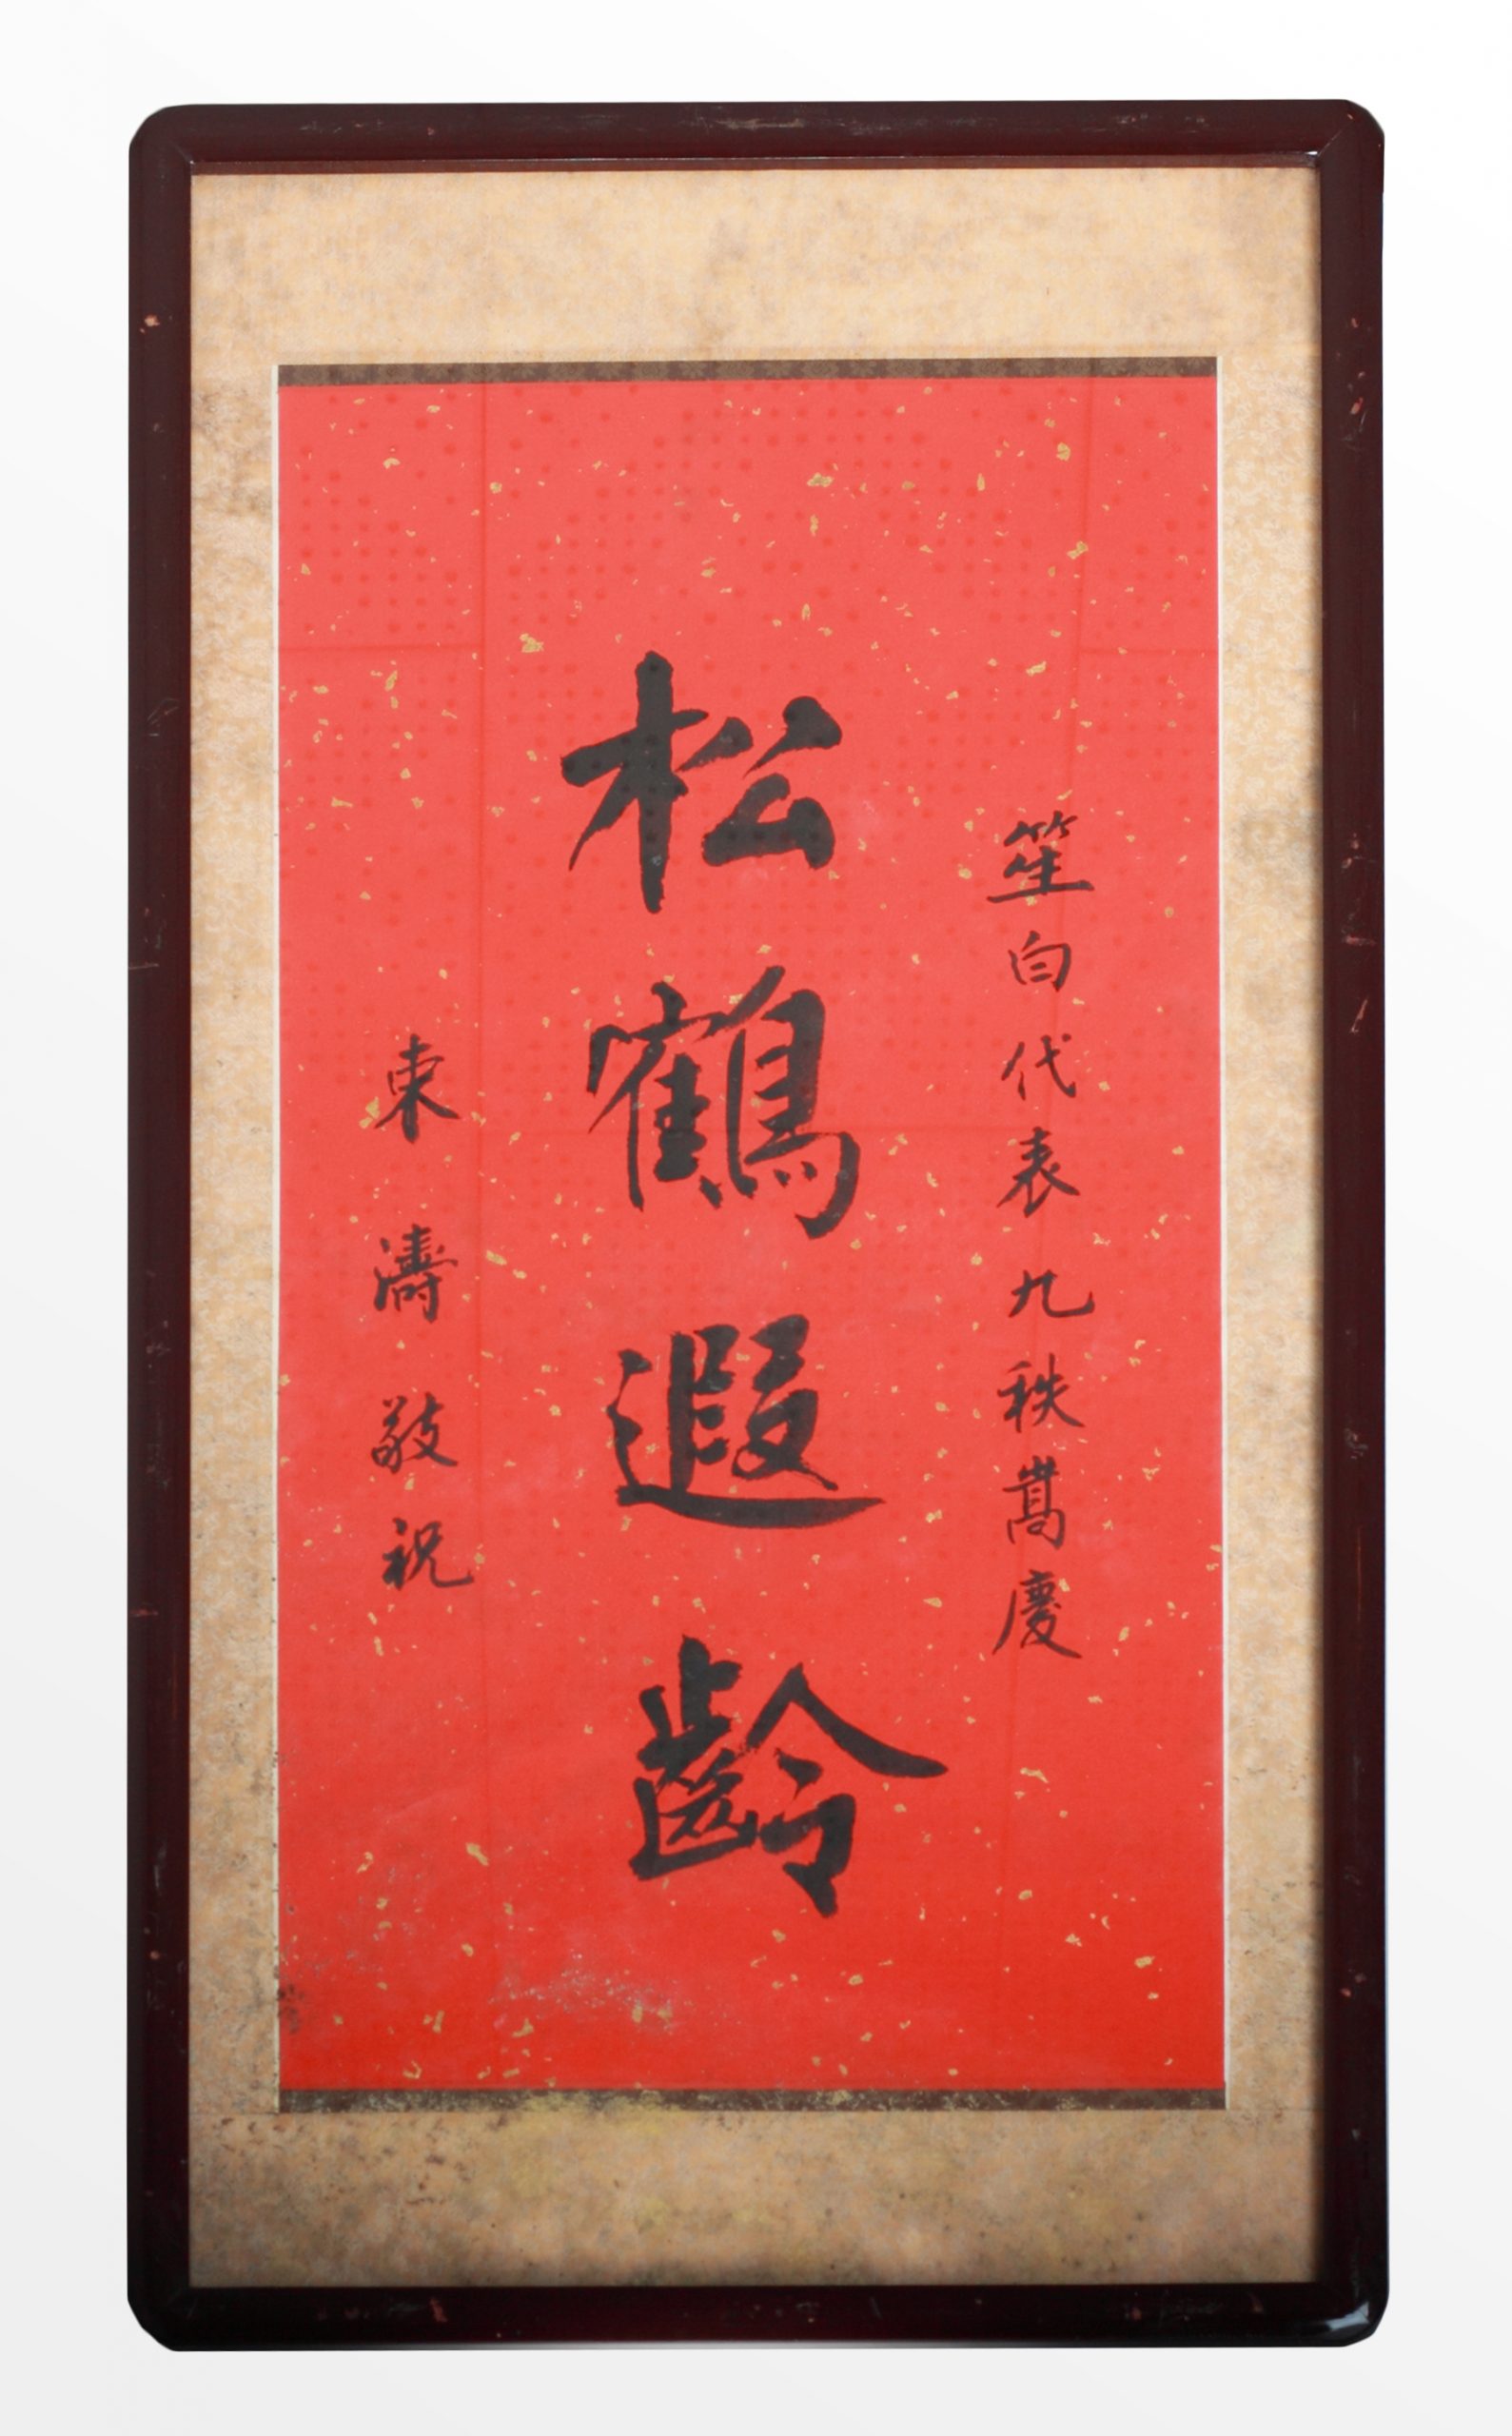 笙白代表九秩嵩慶
松鶴遐齡
東濤敬祝